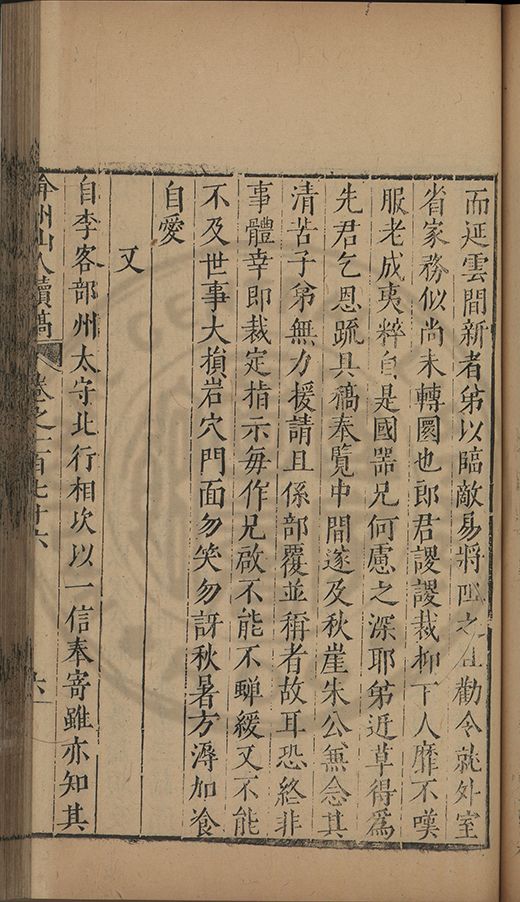 而延雲間新者第以臨敵易將阻之且勸令就外室
省家務似尚未轉圜也郎君謖謖裁抑下人靡不嘆
服老成夷粹自是國器兄何慮之深耶弟近草得為
先君乞恩疏具稿奉覽中間遂及秋崖朱公無念其
清苦子弟無力援請且係部覆並稱者故耳恐終非
事體幸即裁定指示每作兄啟不能不嘽緩又不能
不及世事大損岩穴門面勿笑勿訝秋暑方溽加飡
自愛
又
自李客部州太守北行相次以一信奉寄雖亦知其
弇州山人續稿 卷之一百七十六 六